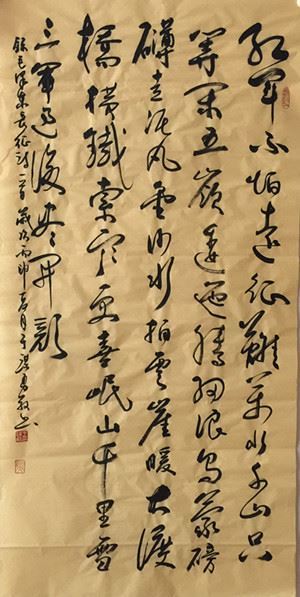 紅軍不怕遠征難萬水千山只
等閑五嶺逶迤騰細浪烏蒙磅
礴走泥丸金沙水拍雲崖暖大渡
橋橫鐵索寒更喜岷山千里雪
三軍過後盡開顏
錄毛澤東長征詩一首歲次丙申月于書